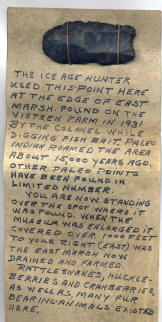 THE ICE AGE HUNTER
USED THIS POINT HERE
AT THE EDGE OF EAST
MARSH. FOUND ON THE
VIETZEN FARM IN 1931
BY THE COLONEL WHILE
DIGGING FISH BAIT. PALEO
INDIAN ROAMED THE AREA
ABOUT 15,000 YEARS AGO.
OTHER PALEO POINTS
HAVE BEEN FOUND IN
LIMITED NUMBER.
YOU ARE NOW STANDING
OVER THE SPOT WHERE IT
WAS FOUND. WHEN THE
MUSEUM WAS ENLARGED IT
COVERED OVER. 1000 FEET
TO YOUR RIGHT (EAST) WAS
THE EAST MARSH NOW
DRAINED AND FARMED.
RATTLESNAKES, HUCKLE-
BERRIES AND CRANBERRIES,
AS WELL AS, MANY FUR
BEARING ANIMALS EXISTED
HERE.